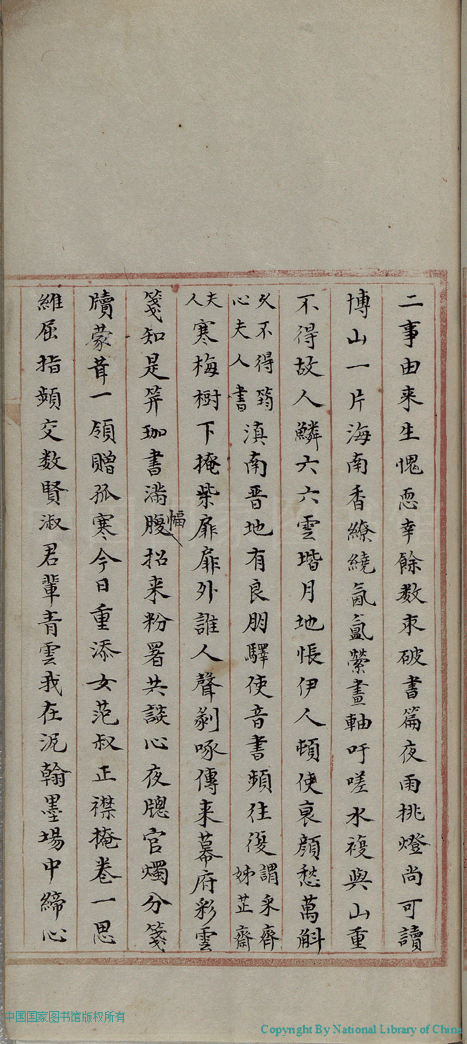 二事由来生愧恧幸餘数束破書篇夜雨挑燈尚可讀
博山一片海南香繚繞氤氳縈畫軸吁嗟水複與山重
不得故人鱗六六雲堦月地悵伊人頓使衷顔愁萬斛
久不得筠心夫人書滇南晋地有良朋驛使音書頻往復謂采齊姊芷齋
夫人寒梅樹下掩柴扉扉外誰人聲剥啄傳来幕府彩雲
箋知是笄珈書滿腹幅招来粉署共談心夜牕官燭分箋
牘蒙茸一領贈孤寒今日重添女范叔正襟掩卷一思
維屈指頻交数賢淑君輩青雲我在泥翰墨場中締心
中国国家图书馆版权所有
Copyright By National Library of China